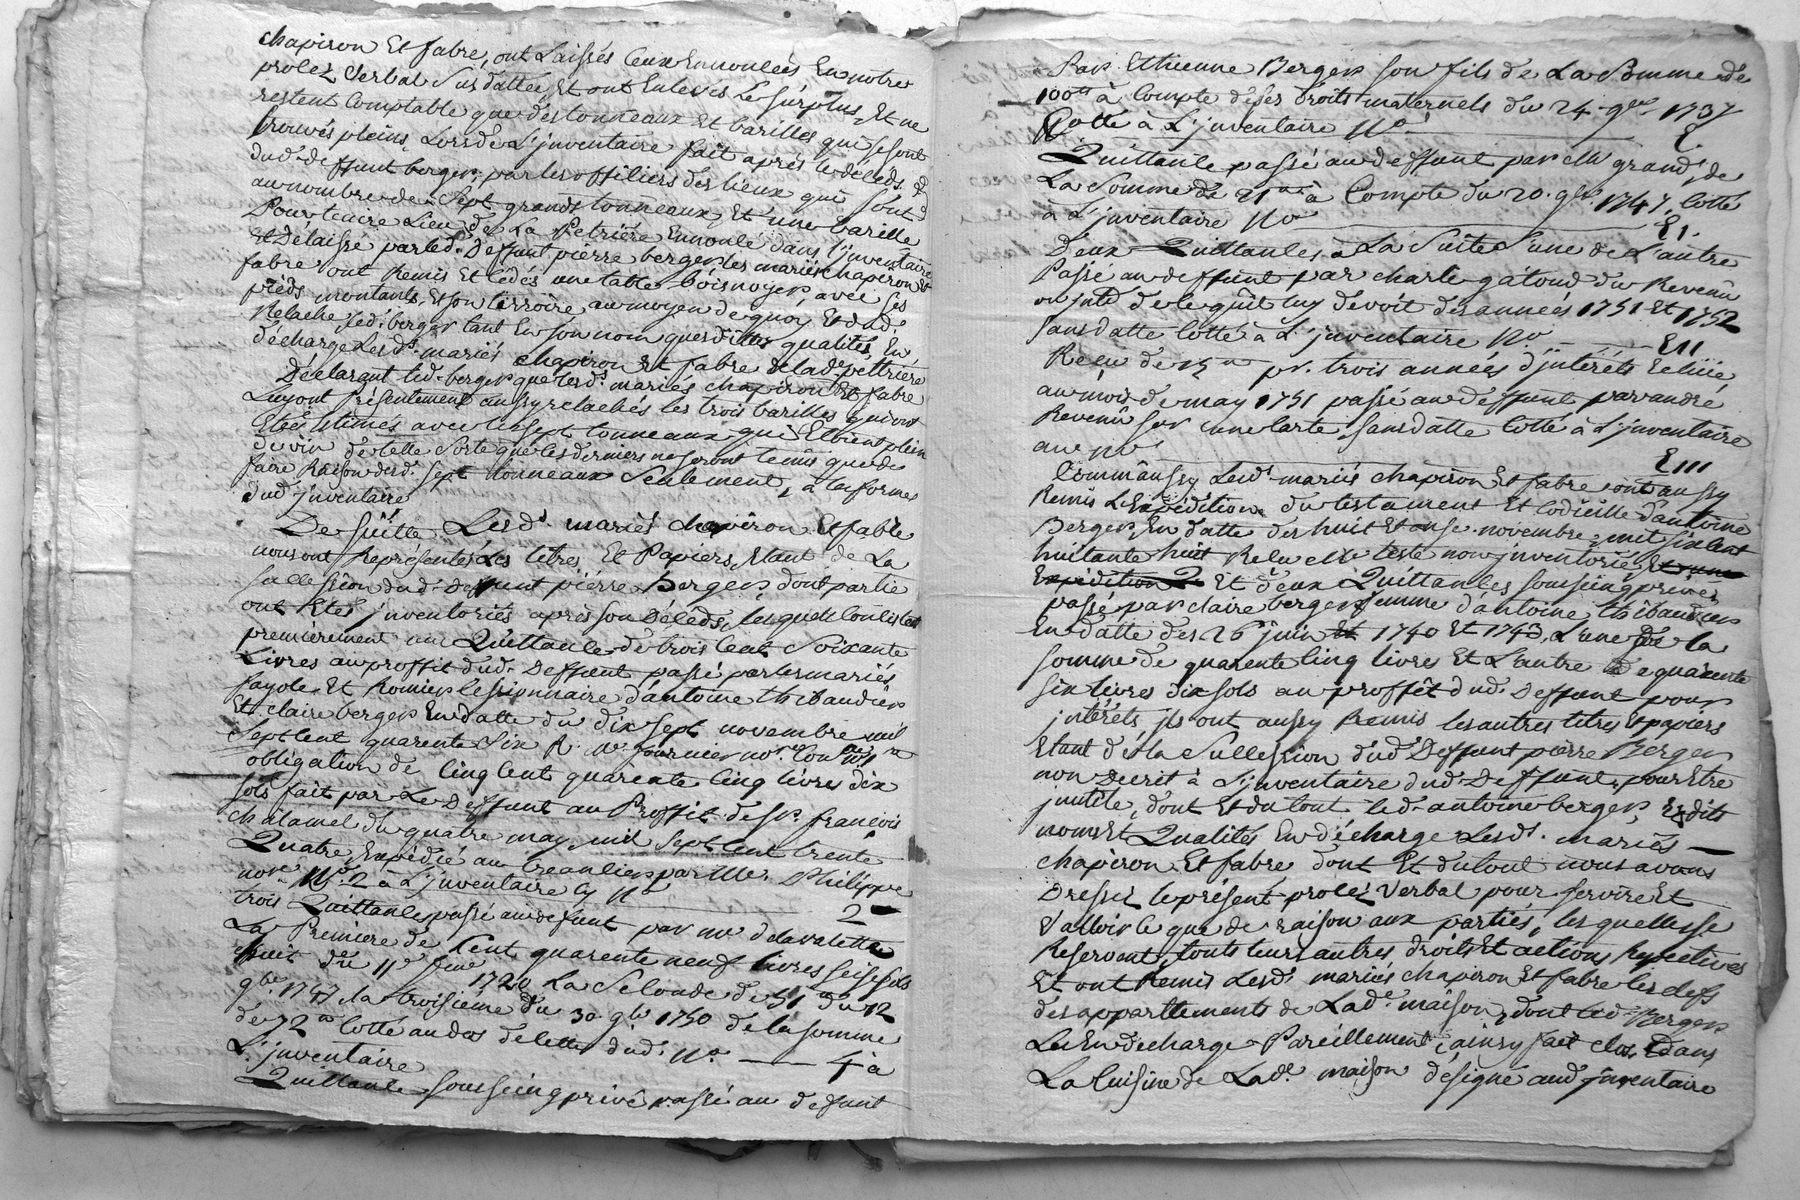 chapiron Et fabre, ont Laissés Ceux Ennoncées En notre
procez Verbal Sus datteé, Et ont Enlevés Le surplus, Et ne
restent Comptable que des tonneaux Et barilles qui se sont
trouvés pleins, Lors de L'jnventaire fait aprés le déceds
dud. deffunt berger, par les officiers des lieux qui sont
au nombre de Sept grands tonneaux, Et une barille
Pour tenire Lieu de La Petriere Ennoncé dans l'jnventaire
Et Délaissé par led. Deffunt pierre berger les mariés chapiron Et
fabre ont Remis Et Cédés une table bois noyer, avec ses
pieds montants, Et son tirroire au moyen de quoy Et dud.
Relache, led. berger tant En son nom que sdittes qualités, En
décharge Lesds. mariés chapiron Et fabre de lade. pettriere
Déclarant led. berger que lesds. mariés chapiron Et fabre
Luy ont présentement aussy relachés les trois barilles qui ont
Etés Estimés avec les Sept tonneaux qui Etoient plein
de vin de telle Sorte que les derniers ne seront tenus que de
faire Raison desd. sept tonneaux Seulement, a la forme
dud. jnventaire
De Suitte Lesds. mariés chapiron Et fabre
nous ont Representés Les titres Et Papiers Etant de La
succession dud. Deffunt piérre Berger, dont partie
ont Etés jnventoriés aprés son Déceds, lesquels Consistent
premierement en Quittance de trois Cent Soixante
Livres au proffit dud. Deffunt passé par les mariés
fayole Et Romier Cessionnaire d'antoine thibaudier
Et claire berger En datte du dix sept novembre mil
Sept Cent quarente six R. Me. fournier nore.
obligation de Cinq Cent quarente Cinq livres dix
sols fait par Le Deffunt au Proffit de sr. françois
chatamel du quatre may mil Sept Cent trente
Quatre, Expédié au par Me. Philippe
nore. No. 2 à L'jnventaire 2
trois Quittances passé au deffunt par mr. delavalette
La Premiere de Cent quarente neuf livres seise sols
huit der. 11e. 1720 La Seconde de 51 du 12
9bre. 1747 la troisieme du 30 9bre 1750 de la somme
de 72 Cotté au dos de cette dud. No. 4 à
L'jnventaire
Quittance sous seing privé passé au deffunt
Par Ethienne Berger son fils de La Somme de
100 à Compte de ses Droits maternels du 24 1737
Cotté à L'jnventaire No. E.
Quittance passé au deffunt par Mr grand, de
La Somme de 21 à Compte du 20. 9bre 1747. Cotté
à L'jnventaire No. E1.
Deux Quittances à La Suite l'une de L'autre
Passé au deffunt par charle gatoud du Revenu
ou de ce qu'il luy devoit des années 1751 Et 1752
sans datte Cotté à L'jnventaire No. E11
Recu de pr. trois années d'jntéréts Echüe
au mois de may 1751 passé au Deffunt par andré
Revenu sur une Carte sans datte Cotté à L'jnventaire
au No. E111
Comm'aussy Lesds. mariés chapiron Et fabre ont aussy
Remis L'Expédition du testament Et Codicille d'antoine
Berger En datte des huit Et onse novembre mil six Cent
huitante huit Recu Me teste non jnventorié Et une
Expédition 2 Et deux Quittances sous seing privés
passé par claire berger femme d'antoine thibaudier
En datte des 26 juin Et 1740 Et 1743, L'une de la
somme de quarente Cinq livres Et L'autre de quarente
six livres dix sols au proffit dud. Deffunt pour
jntéréts, jls ont aussy Remis les autres titres Et papiers
Etant dé la Succession dud. Deffunt piérre Berger
non Decrit à L'jnventaire dud. Deffunt, pour Etre
jnutile, dont Et du tout led. antoine berger, Esdits
noms Et Qualités En décharge Lesds. mariés
chapiron Et fabre dont Et du tout nous avons
Dressez le présent procez Verbal pour servire Et
Valloir Ce que de raison aux parties, les quelles se
Réservent touts leurs autres droits Et actions Respectives
Et ont Remis Lesds. mariés chapiron Et fabre les clefs
des appartements de Lade. maison, dont led. Berger
Les En decharge Pareillement, ainsy fait clos, Edans
La Cuisine de Lade. maison désigné aud. jnventaire